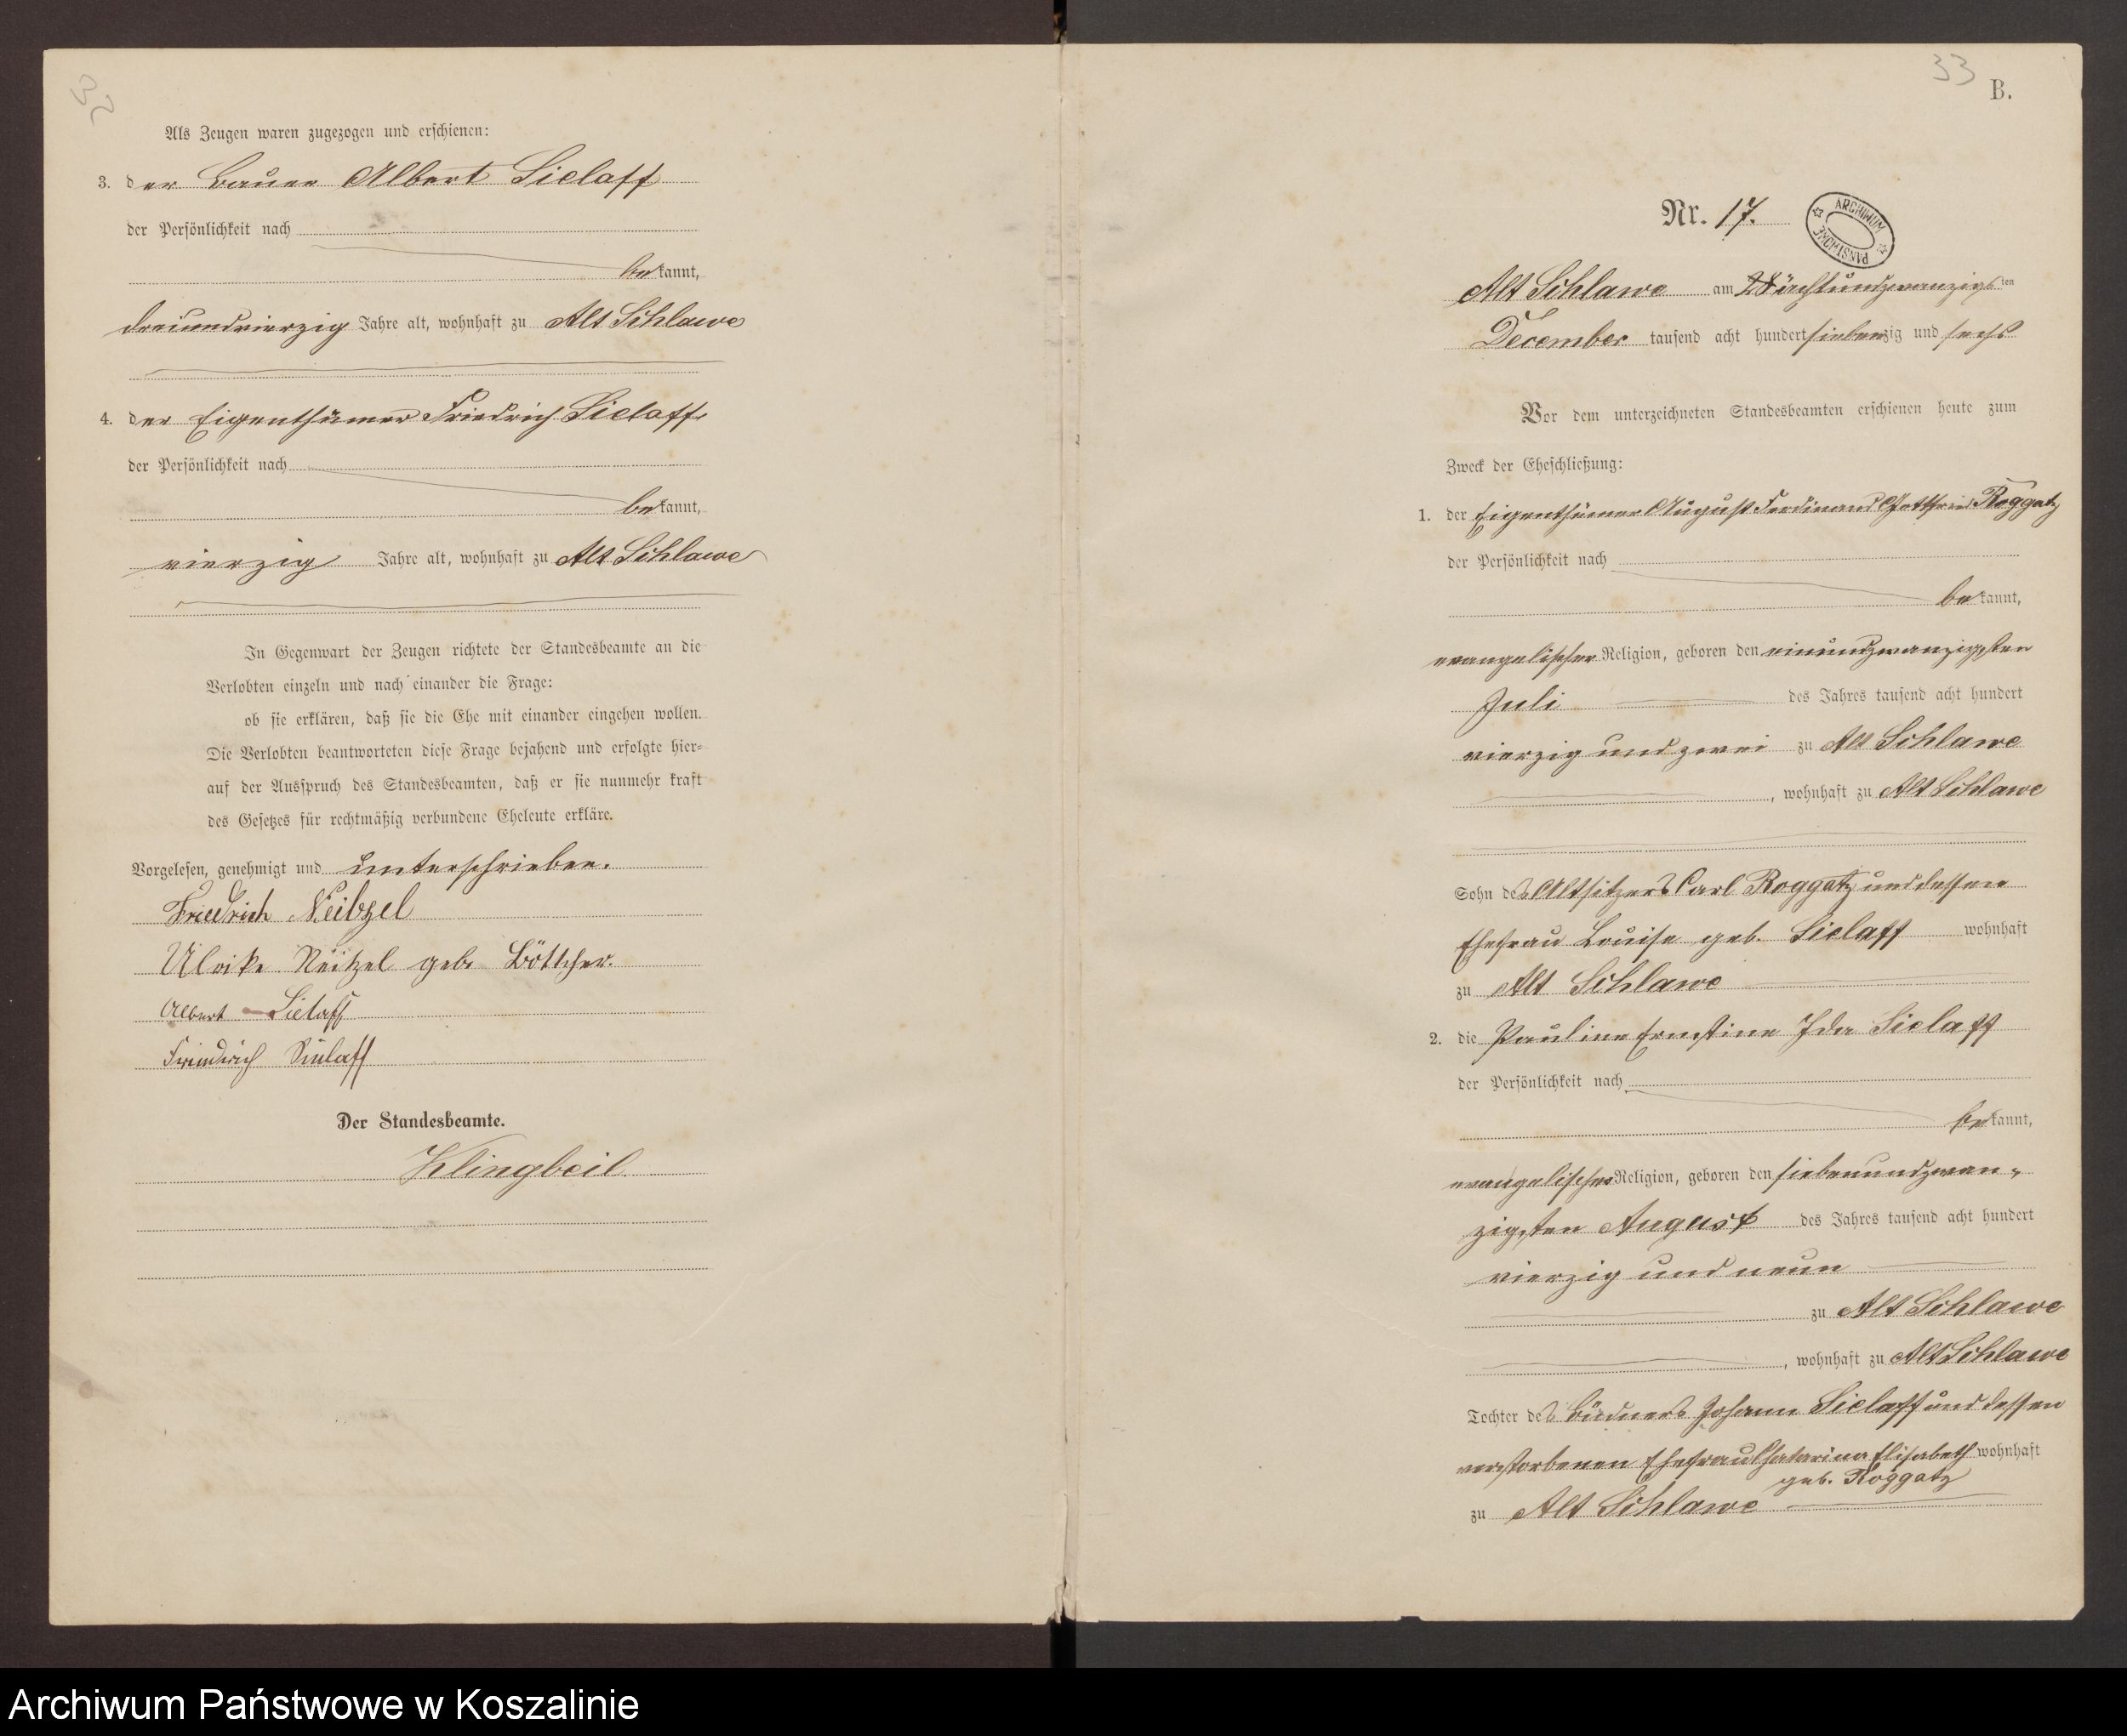 32
Als Zeugen waren zugezogen und erschienen:
3. der Bauer Albert Sielaff
der Persönlichkeit nach
bekannt,
dreiundvierzig Jahre alt, wohnhaft zu Alt Schlawe
4. der Eigenthümer Friedrich Sielaff
der Persönlichkeit nach
bekannt,
vierzig Jahre alt, wohnhaft zu Alt Schlawe
In Gegenwart der Zeugen richtete der Standesbeamte an die
Verlobten einzeln und nach einander die Frage:
ob sie erklären, daß sie die Ehe mit einander eingehen wollen.
Die Verlobten beantworteten diese Frage bejahend und erfolgte hier-
auf der Ausspruch des Standesbeamten, daß er sie nunmehr kraft
des Gesetzes für rechtmäßig verbundene Eheleute erkläre.
Vorgelesen, genehmigt und unterschrieben.
Friedrich Neitzel
Ulrike Neitzel geb. Böttcher.
Albert Sielaff
Friedrich Sielaff
Der Standesbeamte.
Klingbeil
33
B.
Nr. 17.
ARCHIWUM PAŃSTWOWE
Alt Schlawe am achtundzwanzigsten
December tausend acht hundert siebenzig und sechs
Vor dem unterzeichneten Standesbeamten erschienen heute zum
Zweck der Eheschließung:
1. der Eigenthümer August Ferdinand Gottfried Roggatz
der Persönlichkeit nach
bekannt,
evangelischer Religion, geboren den einundzwanzigsten
Juli des Jahres tausend acht hundert
vierzig und zwei zu Alt Schlawe
, wohnhaft zu Alt Schlawe
Sohn des Altsitzers Carl Roggatz und dessen
Ehefrau Louise geb. Sielaff wohnhaft
zu Alt Schlawe
2. die Pauline Ernestine Ida Sielaff
der Persönlichkeit nach
bekannt,
evangelischer Religion, geboren den siebenundzwan-
zigsten August des Jahres tausend acht hundert
vierzig und neun
zu Alt Schlawe
, wohnhaft zu Alt Schlawe
Tochter des Büdners Johann Sielaff und dessen
verstorbenen Ehefrau Chatarina Elisabeth wohnhaft
geb. Roggatz
zu Alt Schlawe
Archiwum Państwowe w Koszalinie